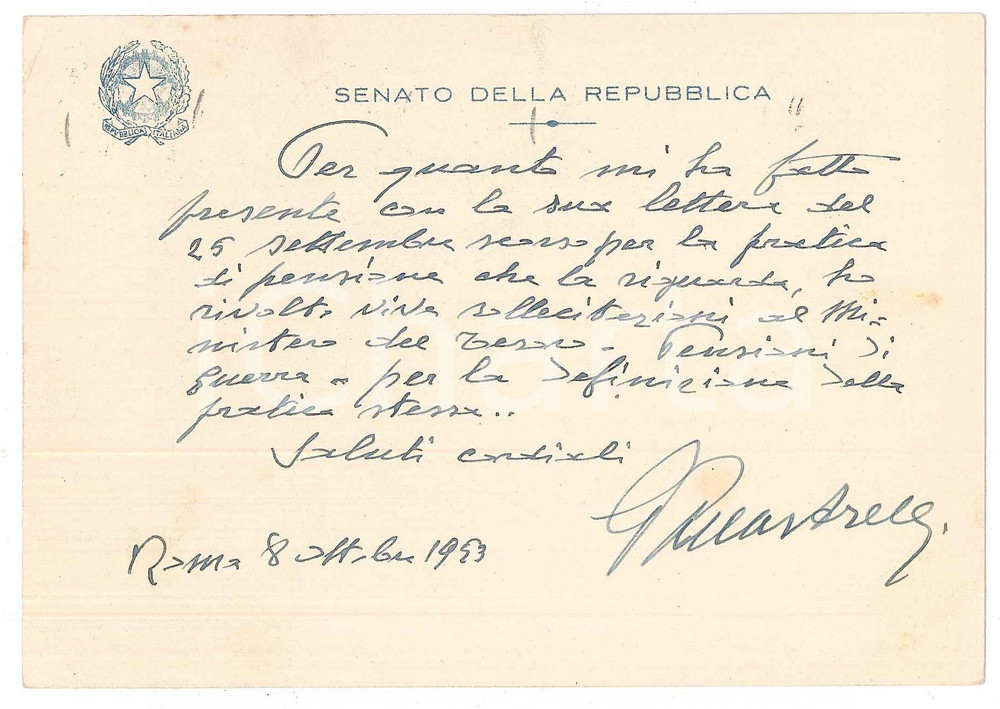 SENATO DELLA REPUBBLICA
REPVBBLICA ITALIANA
Per quanto mi ha fatto
presente con la sua lettera del
25 settembre scorso per la pratica
di pensione che la riguarda, ho
rivolto vive sollecitazioni al Mi-
nistero del Tesoro - Pensioni di
guerra - per la definizione della
pratica stessa..
Saluti cordiali
Roma 8 ottobre 1953